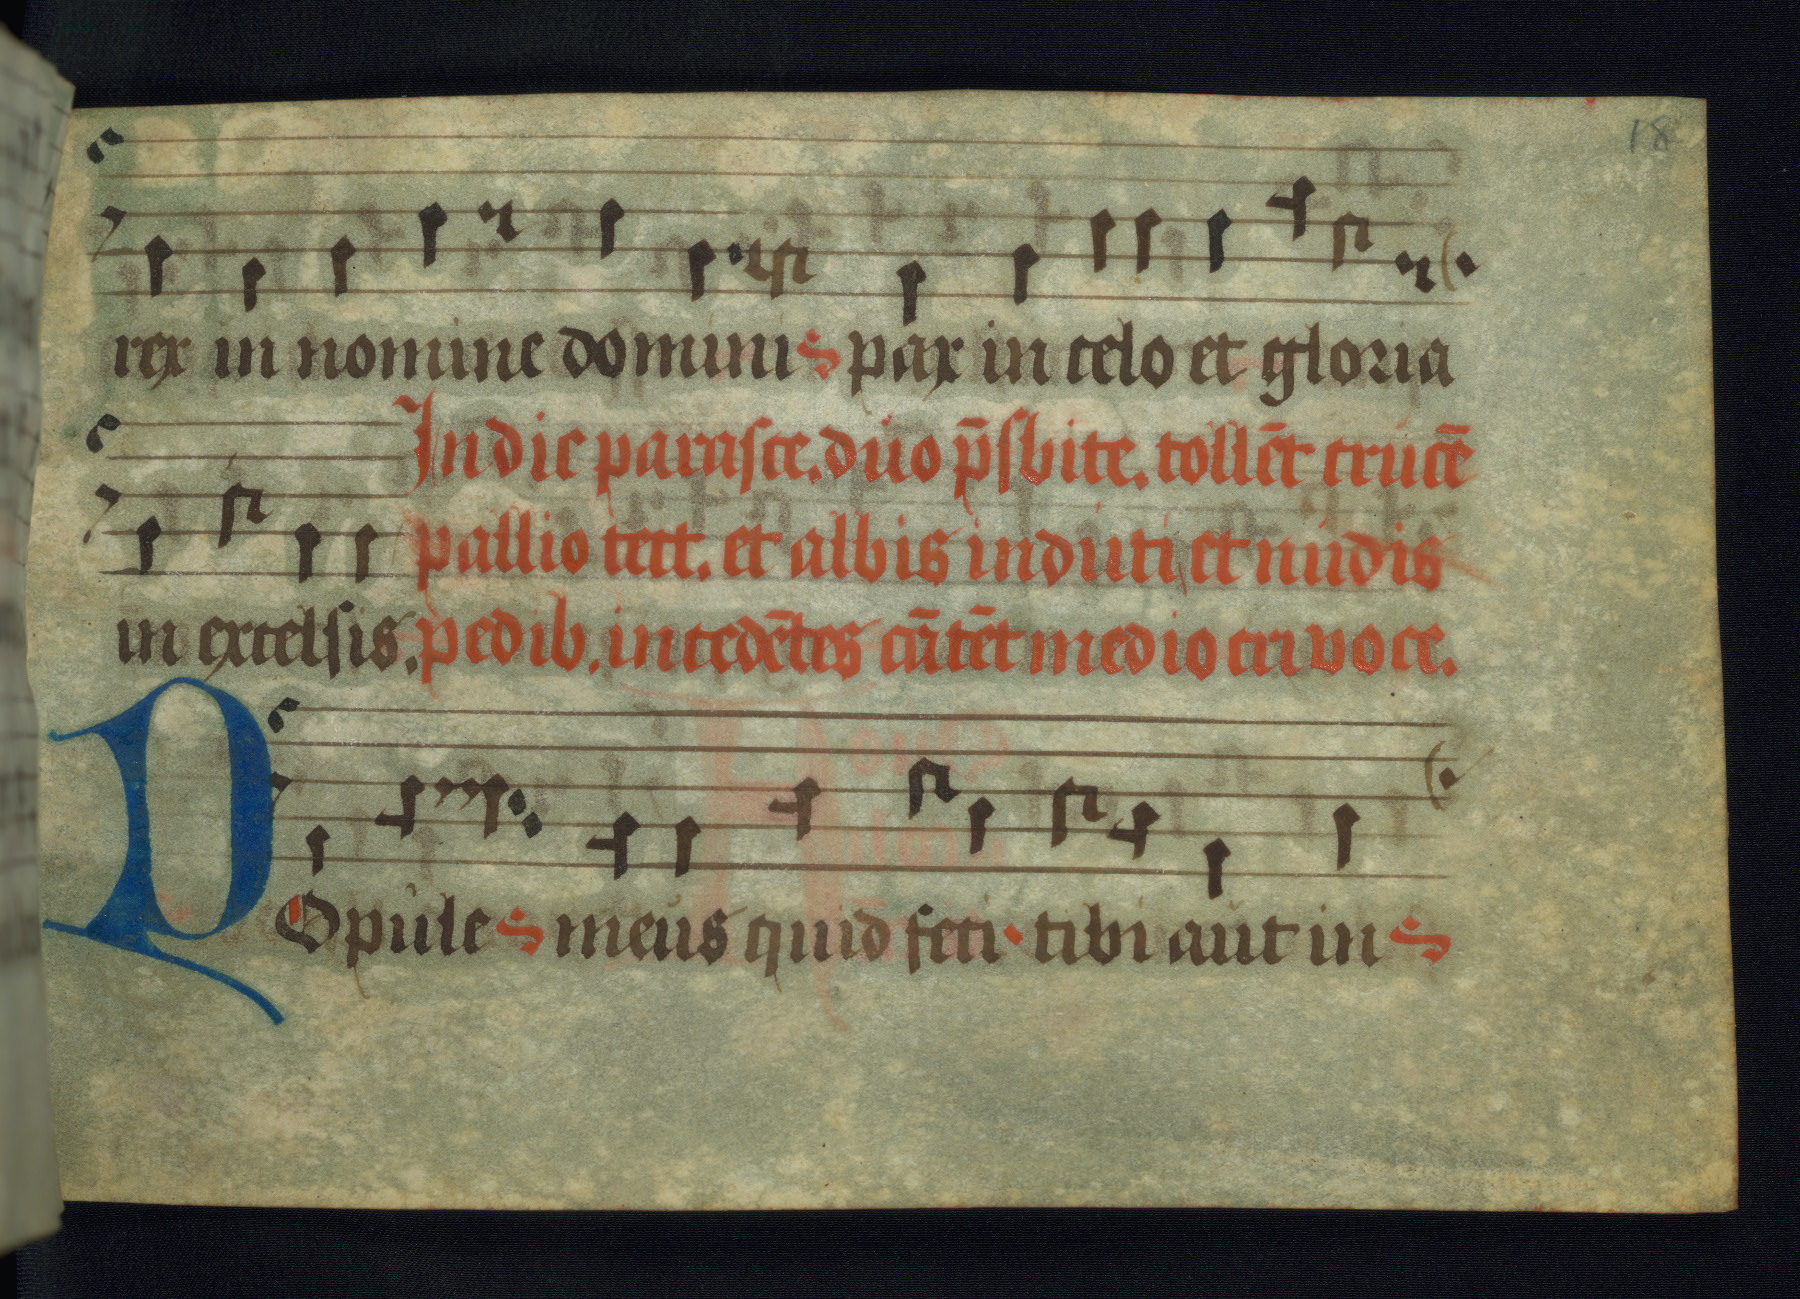 18
rex in nomine domini pax in celo et gloria
In die parasce. duo p̄sbite. tollēt crucē
pallio tect. et albis induti et nudis
in excelsis. pedib. incedētes cātēt mediocri voce.
POpule meus quid feci tibi aut in